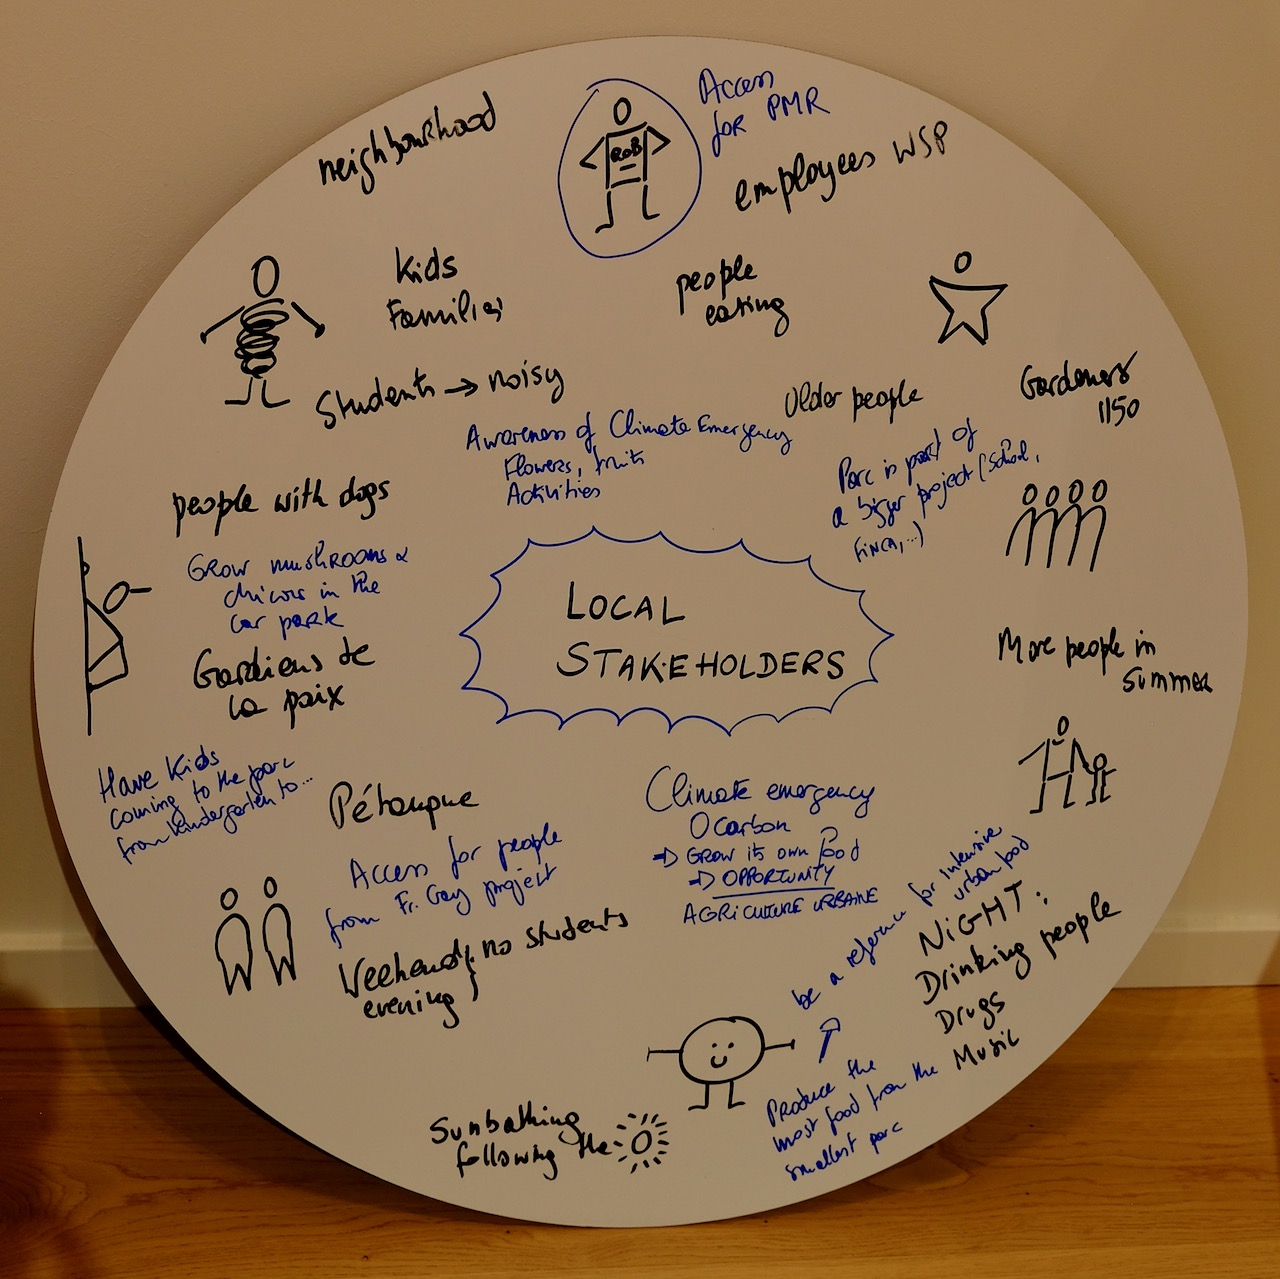 neighbourhood
ROB
Access
for PMR
employees WSP
Kids
Families
people
eating
Students → noisy
Older people
Gardeners
1150
Awareness of Climate Emergency
Flowers, fruits
Activities
Parc is part of
a bigger project (School,
FINCA,...)
people with dogs
Grow mushrooms &
chicons in the
car park
Gardiens de
la paix
LOCAL
STAKEHOLDERS
More people in
summer
Have Kids
coming to the parc
from kindergarten to...
Pétanque
Access for people
from Fr. Gay project
Weekends } no students
evening
Climate emergency
0 carbon
=> Grow its own food
=> OPPORTUNITY
AGRICULTURE URBAINE
be a reference for intensive
urban food
NIGHT:
Drinking people
Drugs
Music
Produce the
most food from the
smallest parc
Sunbathing
following the